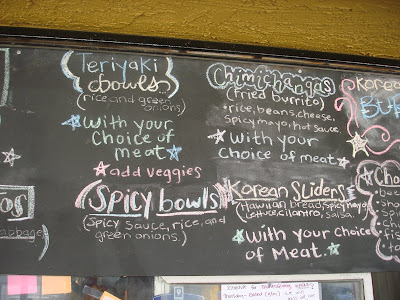 Teriyaki
bowls
(rice and green
onions)
with your
choice of
meat
add veggies
Spicy bowls
(Spicy sauce, rice, and
green onions.)
Chimichangas
(fried burrito)
rice, beans, cheese,
spicy mayo, hot sauce.
with your
choice of meat
Korean Sliders
(Hawiian bread, spicy mayo,
lettuce, cilantro, salsa.)
with your choice
of Meat.
Korean